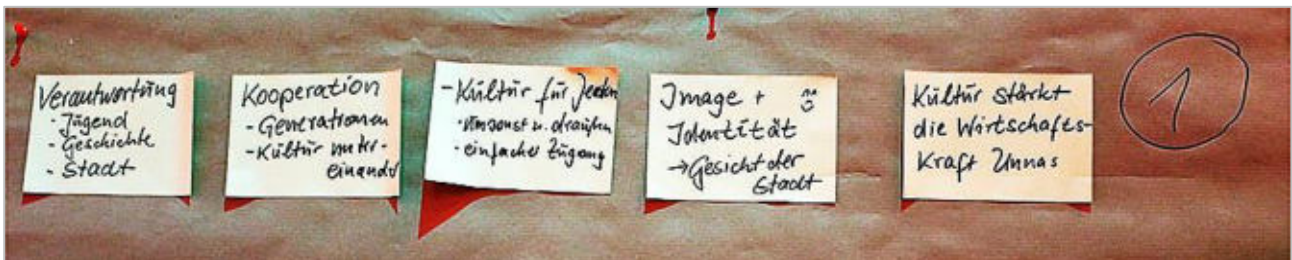 Verantwortung
· Jugend
- Geschichte
- Stadt
Kooperation
- Generationen
- Kultur mitei-
einander
- Kultur für Jeden
· umsonst u. draußen
· einfacher Zugang
Image +
Identität
→ Gesicht der
Stadt
Kultur stärkt
die Wirtschafts-
Kraft Unnas
1